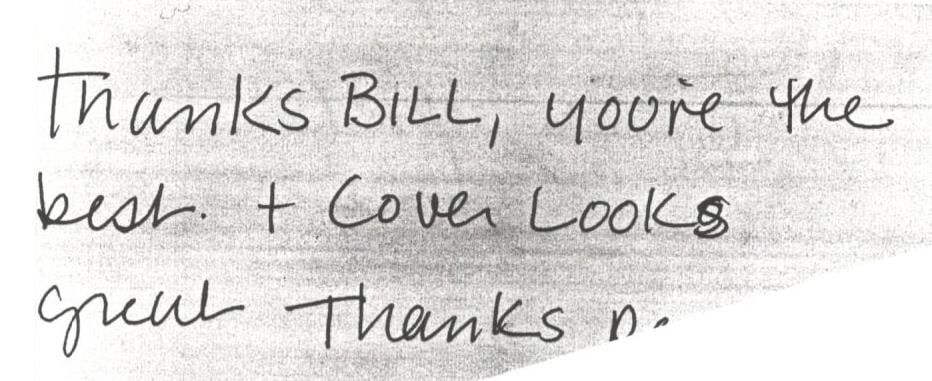 Thanks BILL, you're the
best. + Cover Looks
great Thanks